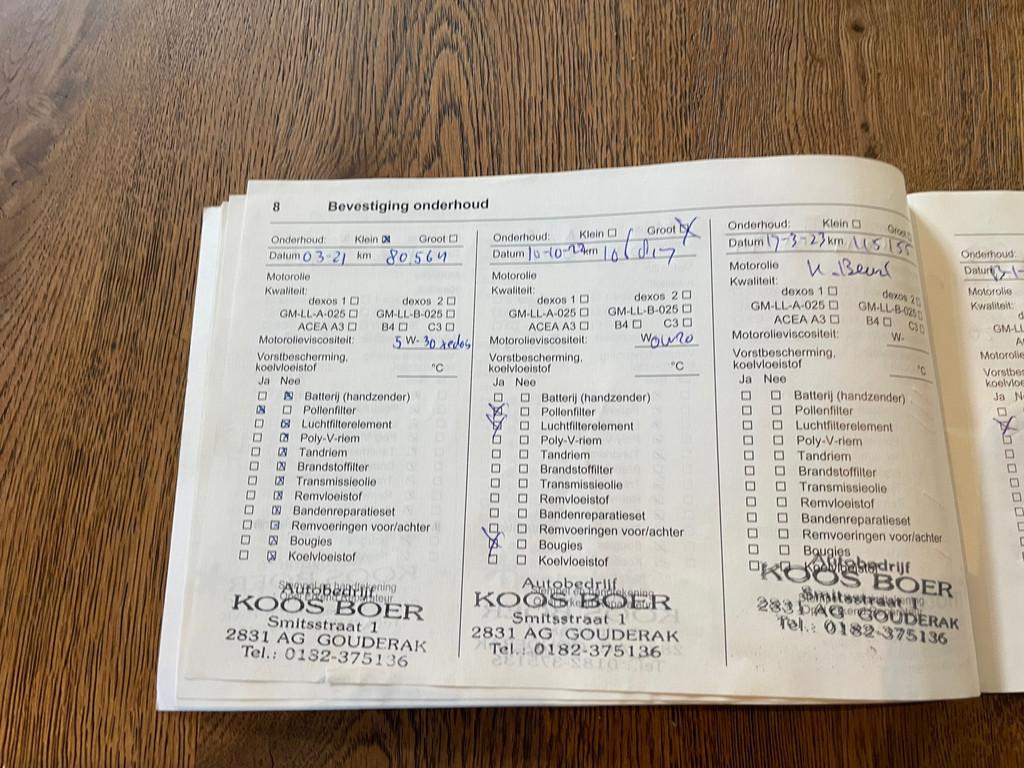 8 Bevestiging onderhoud
Onderhoud: Klein Groot
Datum 03-21 km 80.564
Motorolie
Kwaliteit:
dexos 1 dexos 2
GM-LL-A-025 GM-LL-B-025
ACEA A3 B4 C3
Motorolieviscositeit: 5 W- 30
Vorstbescherming,
koelvloeistof °C
Ja Nee
Batterij (handzender)
Pollenfilter
Luchtfilterelement
Poly-V-riem
Tandriem
Brandstoffilter
Transmissieolie
Remvloeistof
Bandenreparatieset
Remvoeringen voor/achter
Bougies
Koelvloeistof
Autobedrijf
KOOS BOER
Smitsstraat 1
2831 AG GOUDERAK
Tel.: 0182-375136
Onderhoud: Klein Groot
Datum 10-10-22 km
Motorolie
Kwaliteit:
dexos 1 dexos 2
GM-LL-A-025 GM-LL-B-025
ACEA A3 B4 C3
Motorolieviscositeit: W
Vorstbescherming,
koelvloeistof °C
Ja Nee
Batterij (handzender)
Pollenfilter
Luchtfilterelement
Poly-V-riem
Tandriem
Brandstoffilter
Transmissieolie
Remvloeistof
Bandenreparatieset
Remvoeringen voor/achter
Bougies
Koelvloeistof
Autobedrijf
KOOS BOER
Smitsstraat 1
2831 AG GOUDERAK
Tel.: 0182-375136
Onderhoud: Klein Groot
Datum 17-3-23 km 115155
Motorolie
Kwaliteit:
dexos 1 dexos 2
GM-LL-A-025 GM-LL-B-025
ACEA A3 B4 C3
Motorolieviscositeit: W-
Vorstbescherming,
koelvloeistof °C
Ja Nee
Batterij (handzender)
Pollenfilter
Luchtfilterelement
Poly-V-riem
Tandriem
Brandstoffilter
Transmissieolie
Remvloeistof
Bandenreparatieset
Remvoeringen voor/achter
Bougies
Koelvloeistof
Autobedrijf
KOOS BOER
Smitsstraat 1
2831 AG GOUDERAK
Tel.: 0182-375136
Onderhoud:
Motorolie
Kwaliteit: